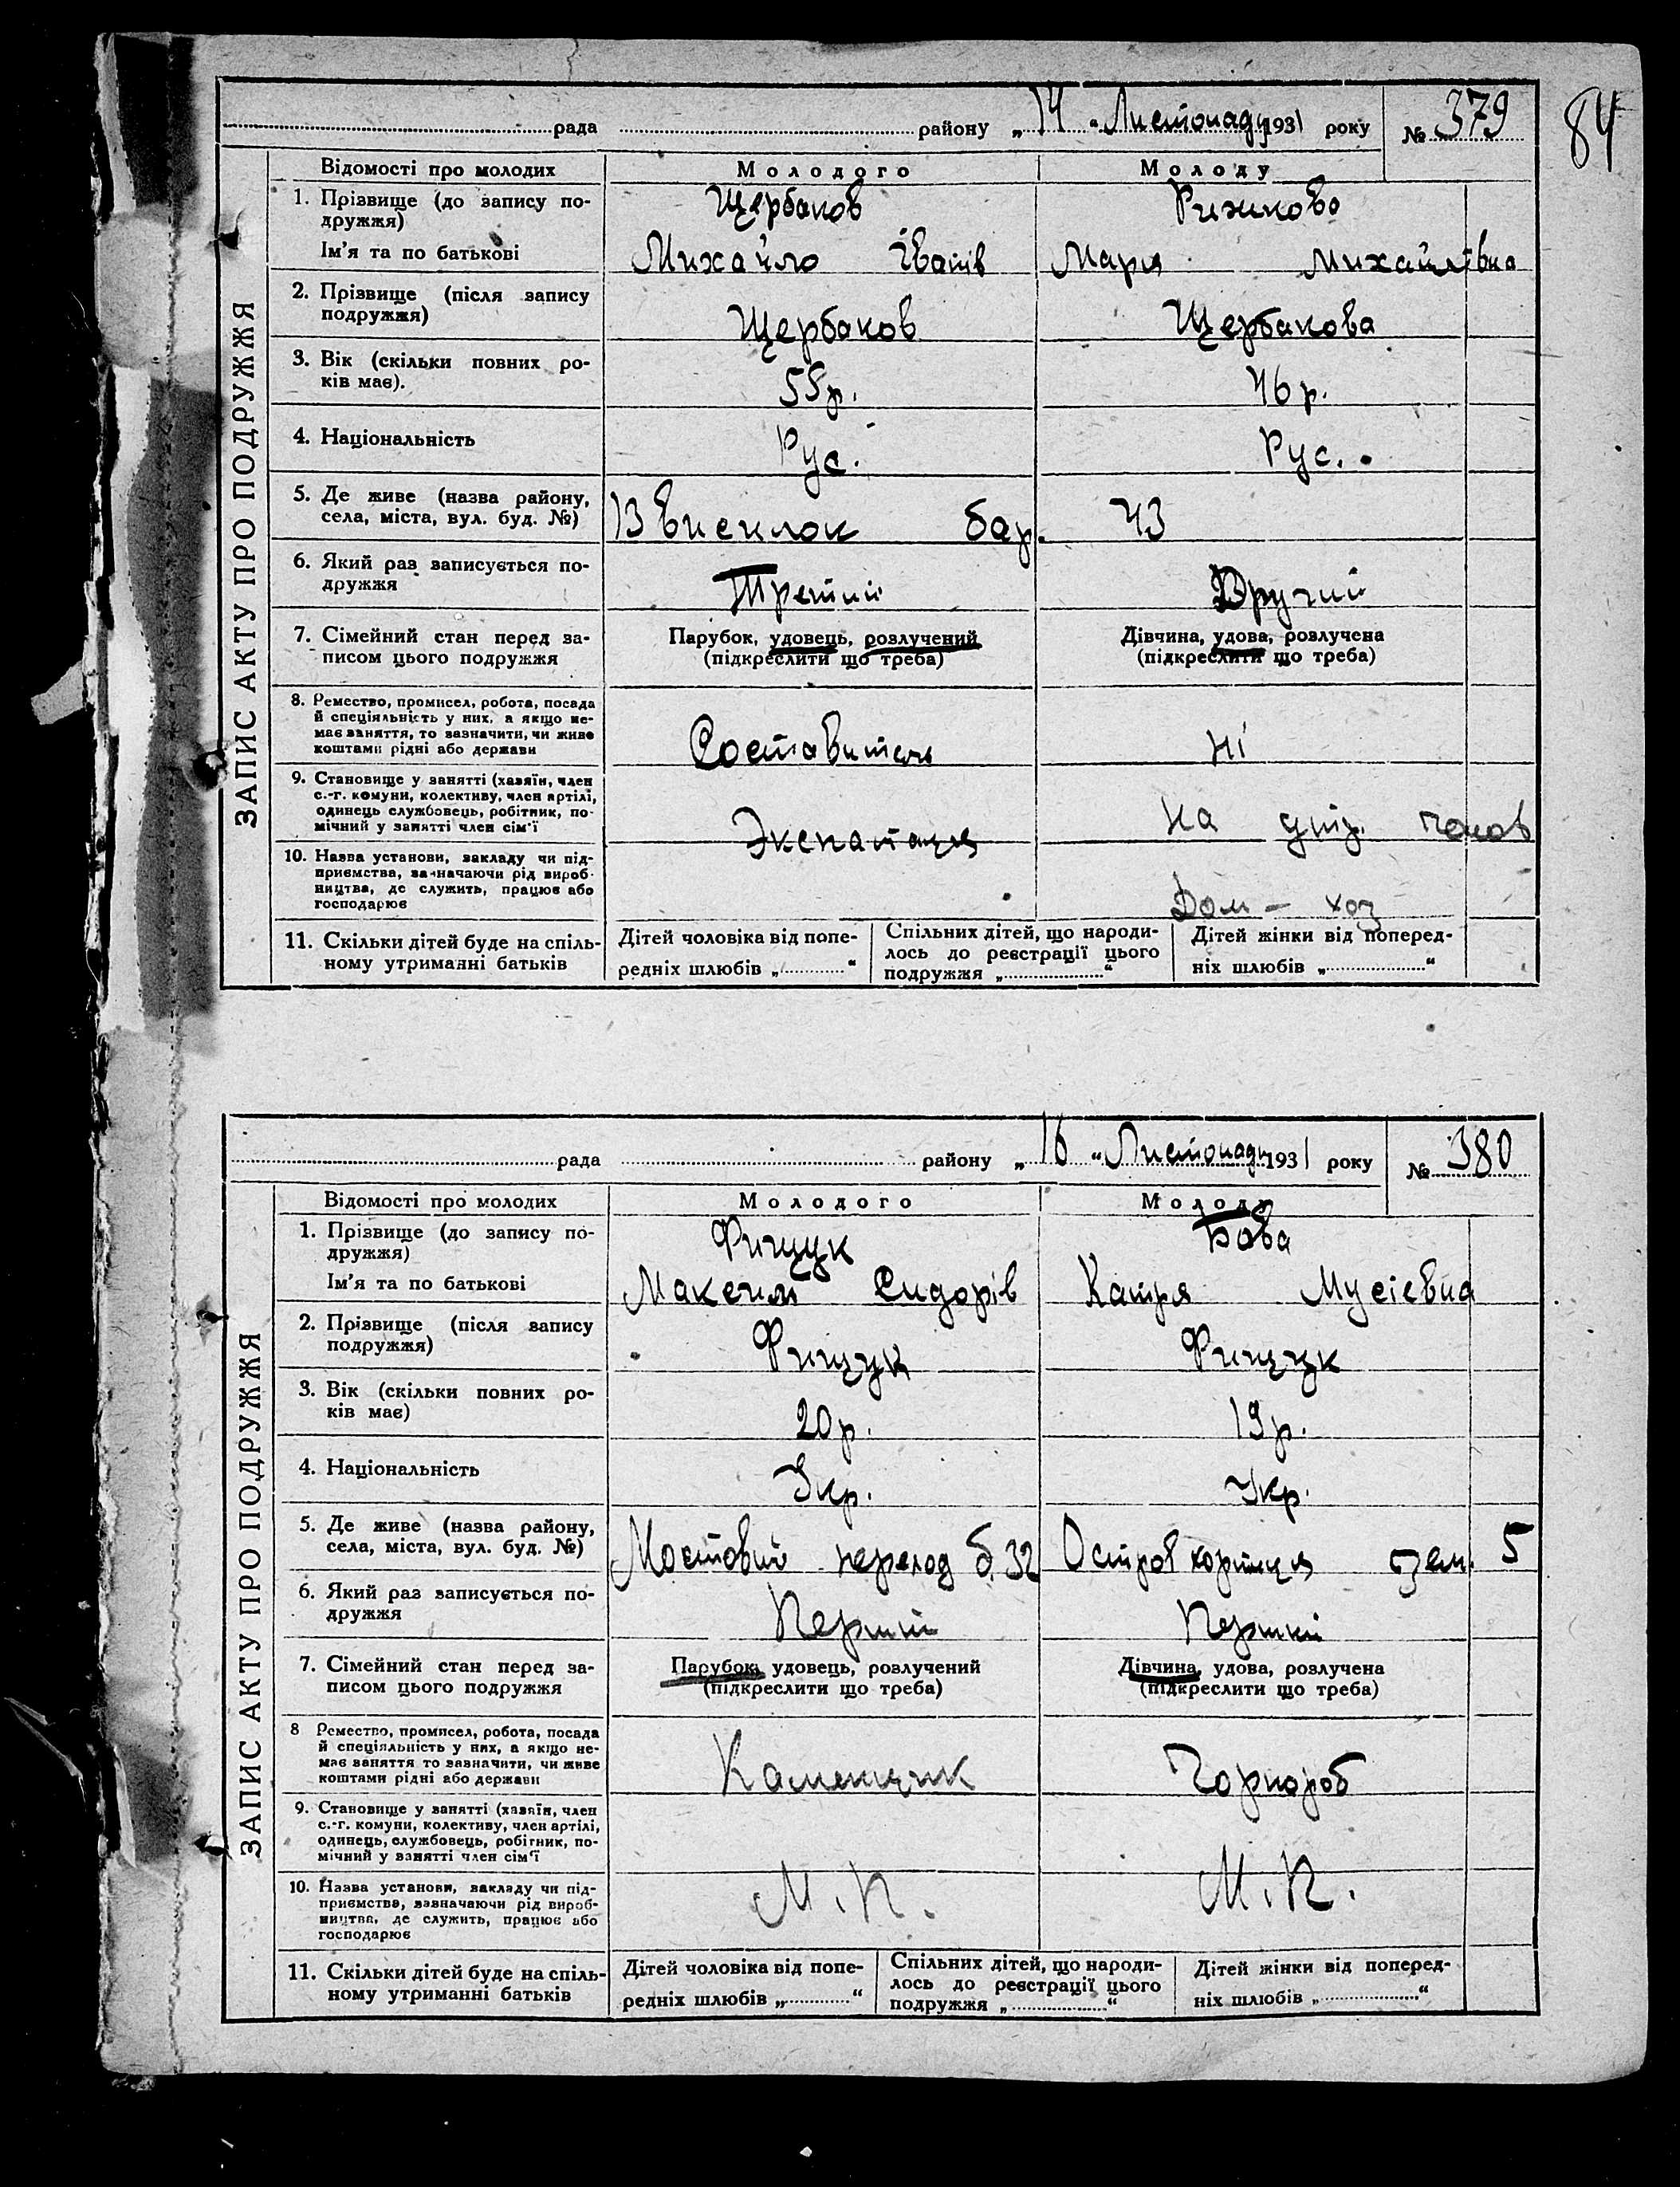 84
рада району „ 14 " Листопаду 1931 року № 379
ЗАПИС АКТУ ПРО ПОДРУЖЖЯ
Відомості про молодих Молодого Молоду
1. Прізвище (до запису по-
дружжя)
Щербаков Рижкова
Ім'я та по батькові
Михайло Іванів Марія Михайлівна
2. Прізвище (після запису
подружжя)
Щербаков Щербакова
3. Вік (скільки повних ро-
ків має).
55р. 46р.
4. Національність
Рус. Рус.
5. Де живе (назва району,
села, міста, вул. буд. №)
13 виселок бар. 43
6. Який раз записується по-
дружжя
Третий Другий
7. Сімейний стан перед за-
писом цього подружжя
Парубок, удовець, розлучений
(підкреслити що треба)
Дівчина, удова, розлучена
(підкреслити що треба)
8. Ремество, промисел, робота, посада
й спеціяльність у них, а якщо не-
має заняття, то зазначити, чи живе
коштами рідні або держави
Составитель Ні
9. Становище у занятті (хазяїн, член
с.-г. комуни, колективу, член артілі,
одинець службовець, робітник, по-
мічний у занятті член сім'ї
на
10. Назва установи, закладу чи під-
приємства, зазначаючи рід вироб-
ництва, де служить, працює або
господарює
Дом - хоз
11. Скільки дітей буде на спіль-
ному утриманні батьків
Дітей чоловіка від попе-
редніх шлюбів „ "
Спільних дітей, що народи-
лось до реєстрації цього
подружжя „ "
Дітей жінки від поперед-
ніх шлюбів „ "
рада району „ 16 " Листопаду 1931 року № 380
ЗАПИС АКТУ ПРО ПОДРУЖЖЯ
Відомості про молодих Молодого Молоду
1. Прізвище (до запису по-
дружжя)
Фищук Бова
Ім'я та по батькові
Максим Сидорів Катря Мусієвна
2. Прізвище (після запису
подружжя)
Фищук Фищук
3. Вік (скільки повних ро-
ків має)
20р. 19р.
4. Національність
Укр. Укр.
5. Де живе (назва району,
села, міста, вул. буд. №)
Мостовий переход б. 32 Остров хортиця зем. 5
6. Який раз записується по-
дружжя
Перший Перший
7. Сімейний стан перед за-
писом цього подружжя
Парубок, удовець, розлучений
(підкреслити що треба)
Дівчина, удова, розлучена
(підкреслити що треба)
8 Ремество, промисел, робота, посада
й спеціяльність у них, а якщо не-
має заняття то зазначити, чи живе
коштами рідні або держави
Каменщик Чорнороб
9. Становище у занятті (хазяїн, член
с.-г. комуни, колективу, член артілі,
одинець, службовець, робітник, по-
мічний у занятті член сім'ї
10. Назва установи, закладу чи під-
приємства, зазначаючи рід вироб-
ництва, де служить, працює або
господарює
М. П. М. П.
11. Скільки дітей буде на спіль-
ному утриманні батьків
Дітей чоловіка від попе-
редніх шлюбів „ "
Спільних дітей, що народи-
лось до реєстрації цього
подружжя „ "
Дітей жінки від поперед-
ніх шлюбів „ "